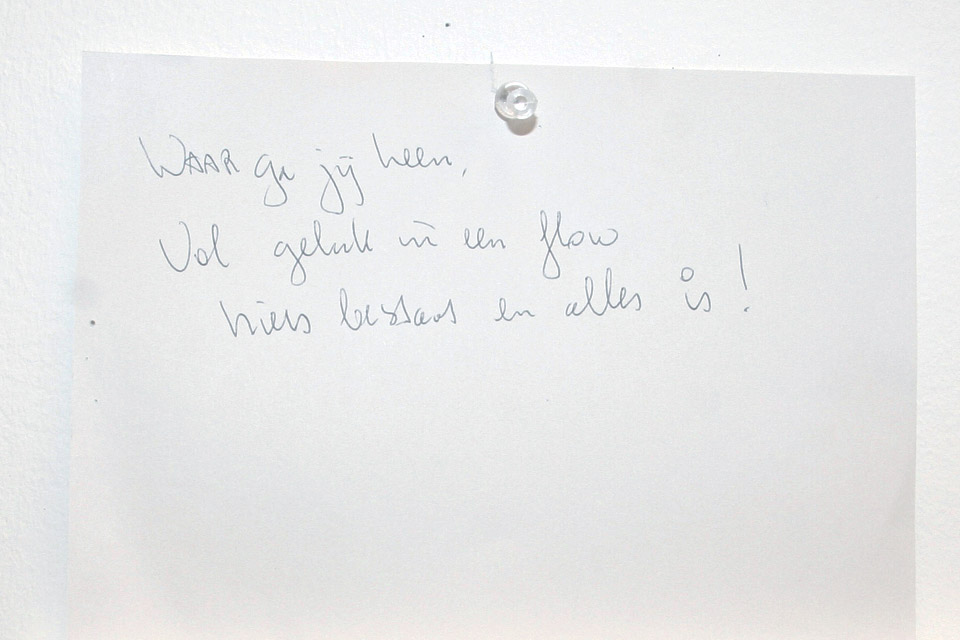 WAAR ga jij heen,
Vol geluk in een flow
niets bestaat en alles is!